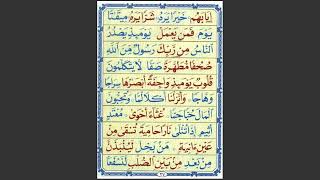 اِيَابَهُمْ خَيْرًا يَرَهٗ شَرًّا يَرَهٗ مِيْقَاتًا
يَوْمَ فَمَنْ يَعْمَلْ يَوْمَئِذٍ يَصْدُرُ
النَّاسُ مِنْ رَبِّكَ رَسُوْلٌ مِنَ اللهِ
صُحُفًا مُطَهَّرَةً صَفًّا لَا يَتَكَلَّمُوْنَ
قُلُوْبٌ يَوْمَئِذٍ وَاجِفَةٌ اَبْصَارُهَا سِرَاجًا
وَهَّاجًا وَاَنْزَلْنَا اَكْلًا لَمًّا وَتُحِبُّوْنَ
الْمَالَ حُبًّا جَمًّا غُثَاءً اَحْوٰى مُعْتَدٍ
اَثِيْمٍ اِذَا تُتْلٰى نَارًا حَامِيَةً تُسْقٰى مِنْ
عَيْنٍ اٰنِيَةٍ مَنْ بَخِلَ لَيُنْبَذَنَّ
مِنْ بَعْدِ مِنْ بَيْنِ الصُّلْبِ لَنَسْفَعًا